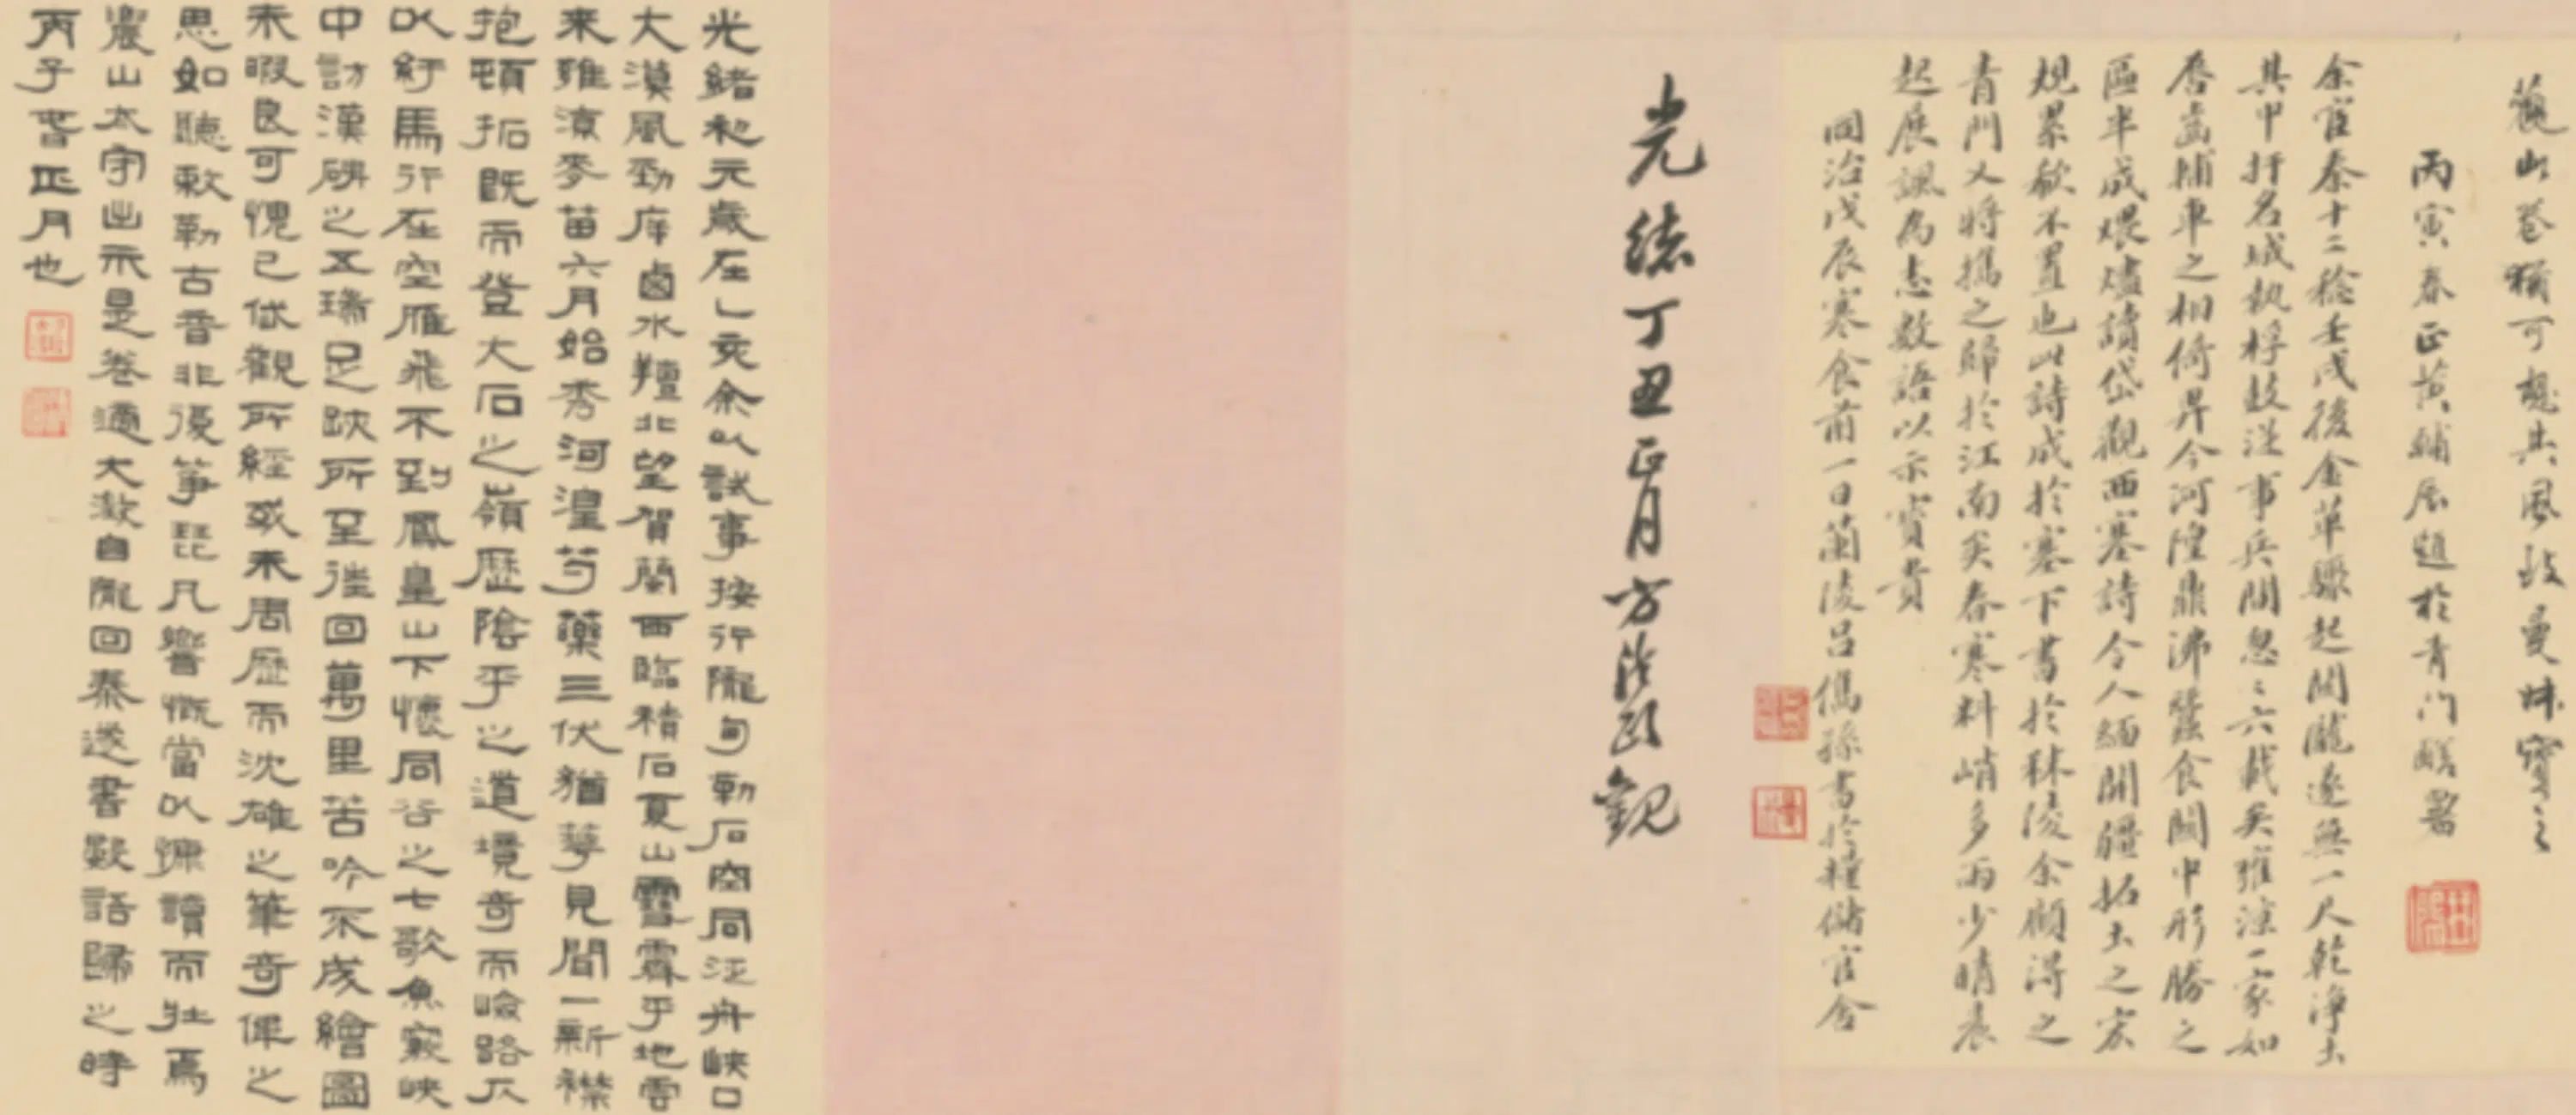 蘓山卷獨可想其風致曼妹寶之
丙寅春正黃輔辰題於青門醫署
余官秦十二稔壬戌後金革驟起關隴遂無一尺乾淨土
其中扞名城執桴鼓從事兵間忽〻六載矣瓘涼一家如
唇齒輔車之相倚畀今河隍鼎沸蠶食關中形勝之
區半成煨燼讀岱觀西塞詩令人緬開疆拓土之宏
規累欷不置也此詩成於塞下書於秣陵余願得之
青門又將攜之歸於江南矣春寒料峭多雨少晴晨
起展諷為志數語以示寶貴
同治戊辰寒食前一日蘭陵呂儁孫書於糧儲官舍
光緒丁丑正月方濬頤觀
光緒初元歲在乙亥余以試事按行隴甸勒石空同泛舟峽口
大漠風勁庠鹵水羶北望賀蘭西臨積石夏山雪霽乎地雲
來雖涼麥苗六月始秀河湟芍藥三伏猶萼見聞一新襟
抱頓拓既而登大石之嶺歷陰平之道境奇而嶮路仄
以紆馬行在空雁飛不到鳳皇山下懷同谷之七歌魚竅峽
中訪漢碑之五瑞足跡所至往回萬里苦吟不成繪圖
未暇良可愧已岱觀所經或未周歷而沈雄之筆奇偉之
思如聽敕勒古音非復箏琵凡響慨當以慷讀而壯焉
農山太守出示是卷適大澂自隴回秦遂書數語歸之時
丙子春正月也